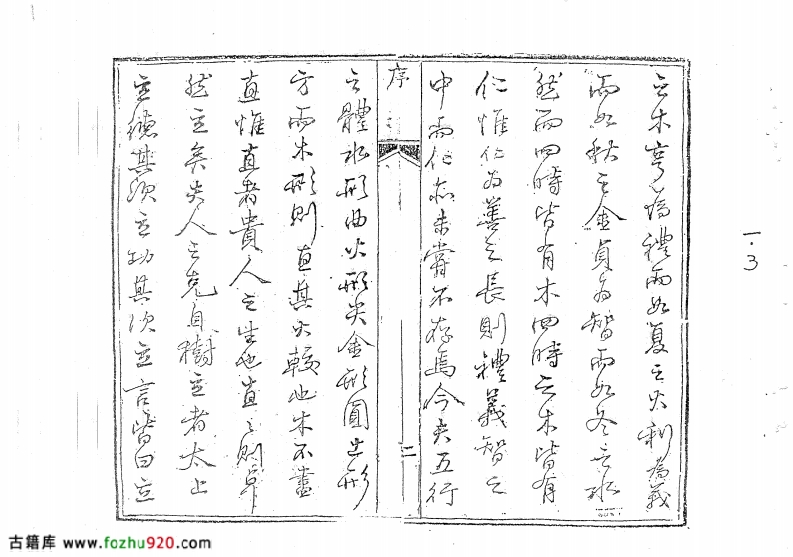 之木亨為禮而如夏之火利為義
而如秋之金貞為智而如冬之水
然而四時皆有木四時之木皆有
仁惟仁為善之長則禮義智之
中而仁亦未嘗不存焉今夫五行
序
二
之體水形曲火形尖金形圓土形
方而木形則直其大較也木不盡
直惟直者貴人之生也直直則卓
然立矣夫人之克自樹立者太上
立德其次立功其次立言皆曰立
一.3
古籍库 www.fozhu920.com